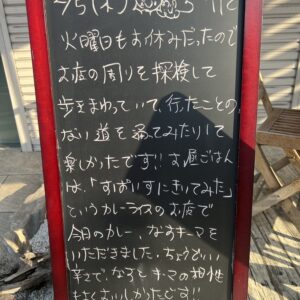 /5(木)
火曜日もお休みだったので
お店の周りを探検して
歩きまわっていて、行ったことの
ない道を通ってみたりして
楽しかったです!! お昼ごはん
は、「すぱいすにきいてみた」
というカレーライスのお店で
今日のカレー、なすキーマを
いただきました。ちょうどいい
辛さで、なすとキーマの相性
もよくおいしかったです!!